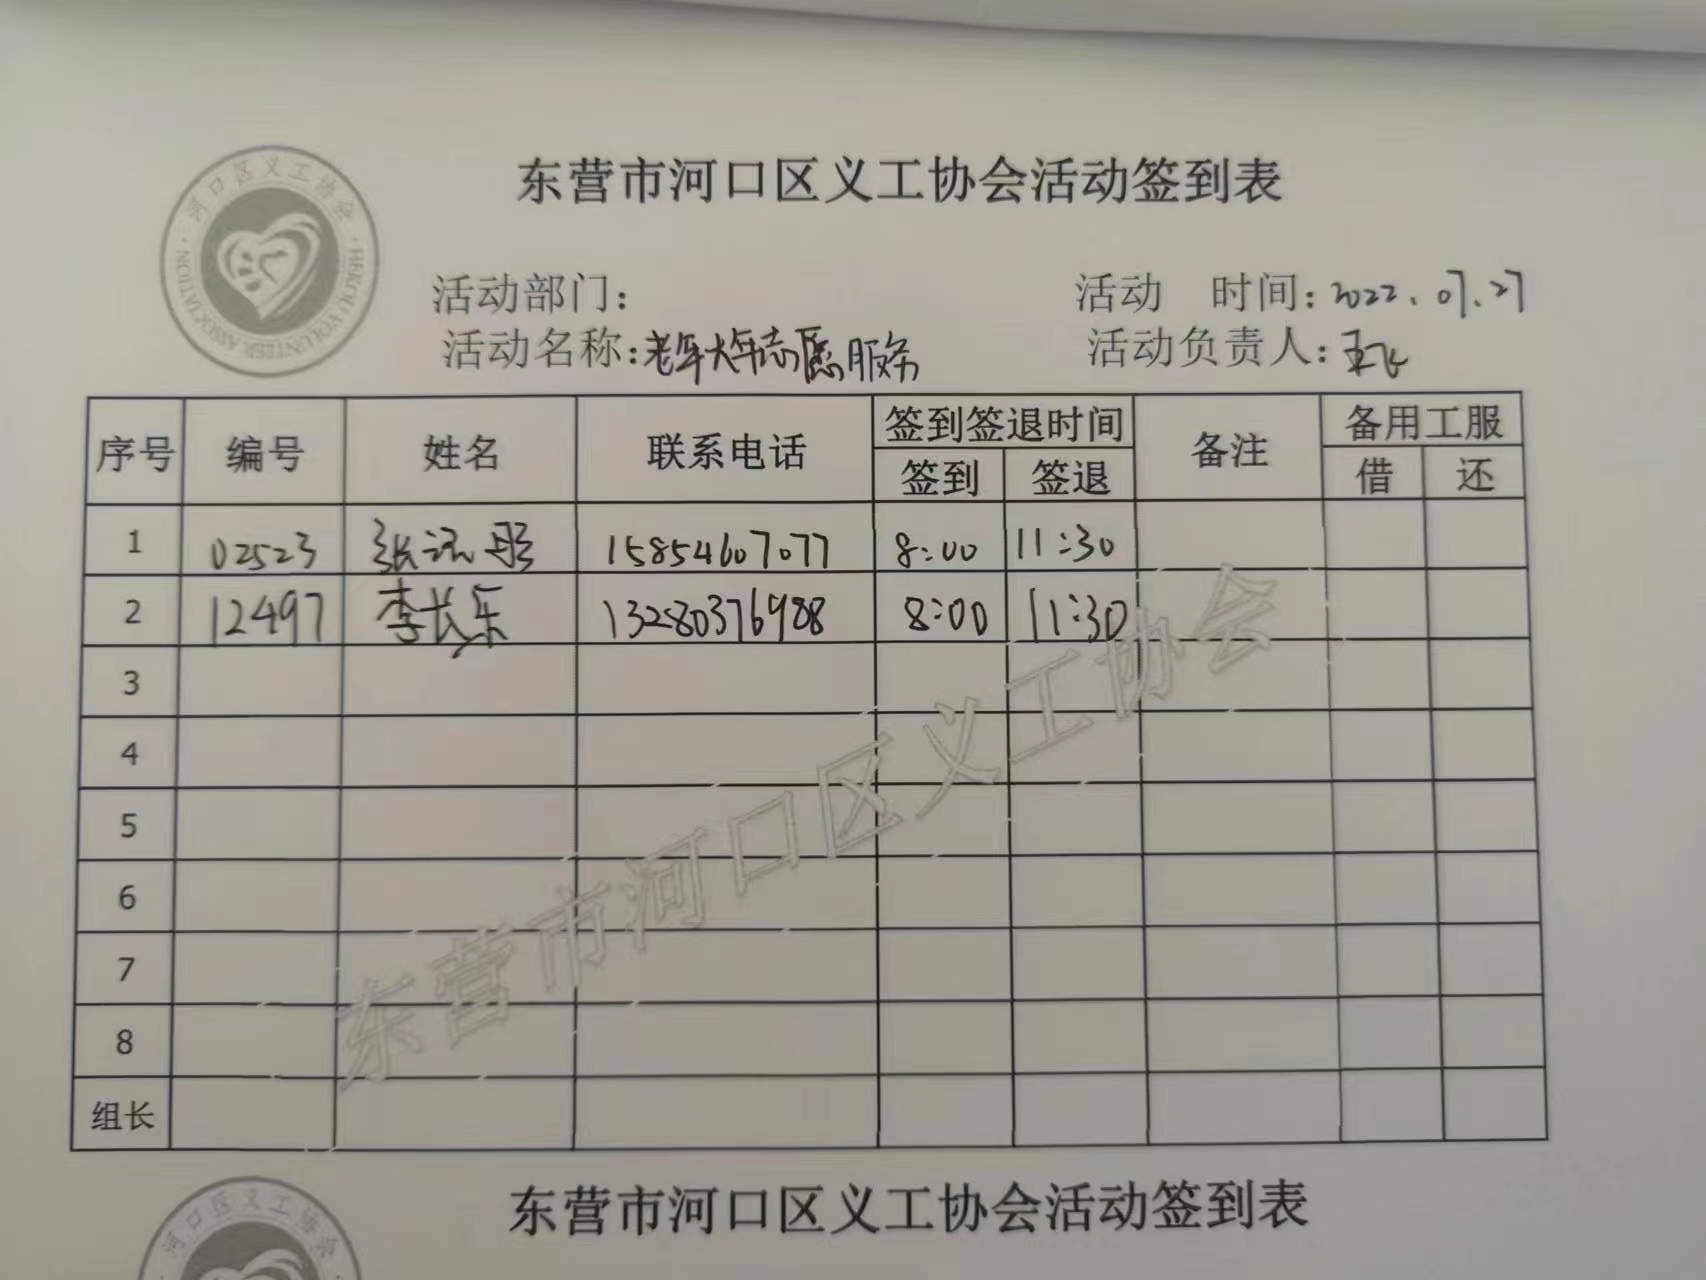 东营市河口区义工协会活动签到表
河口区义工协会
HEKOU VOLUNTEER ASSOCIATION
活动部门：
活动 时间：2022.07.27
活动名称：老年大学志愿服务
活动负责人：王飞
序号 编号 姓名 联系电话 签到签退时间 备注 备用工服
签到 签退 借 还
1 02523 张 彤 15854607077 8:00 11:30
2 12497 李长乐 13280376988 8:00 11:30
3
4
5
6
7
8
组长
东营市河口区义工协会
东营市河口区义工协会活动签到表
河口区义工协会